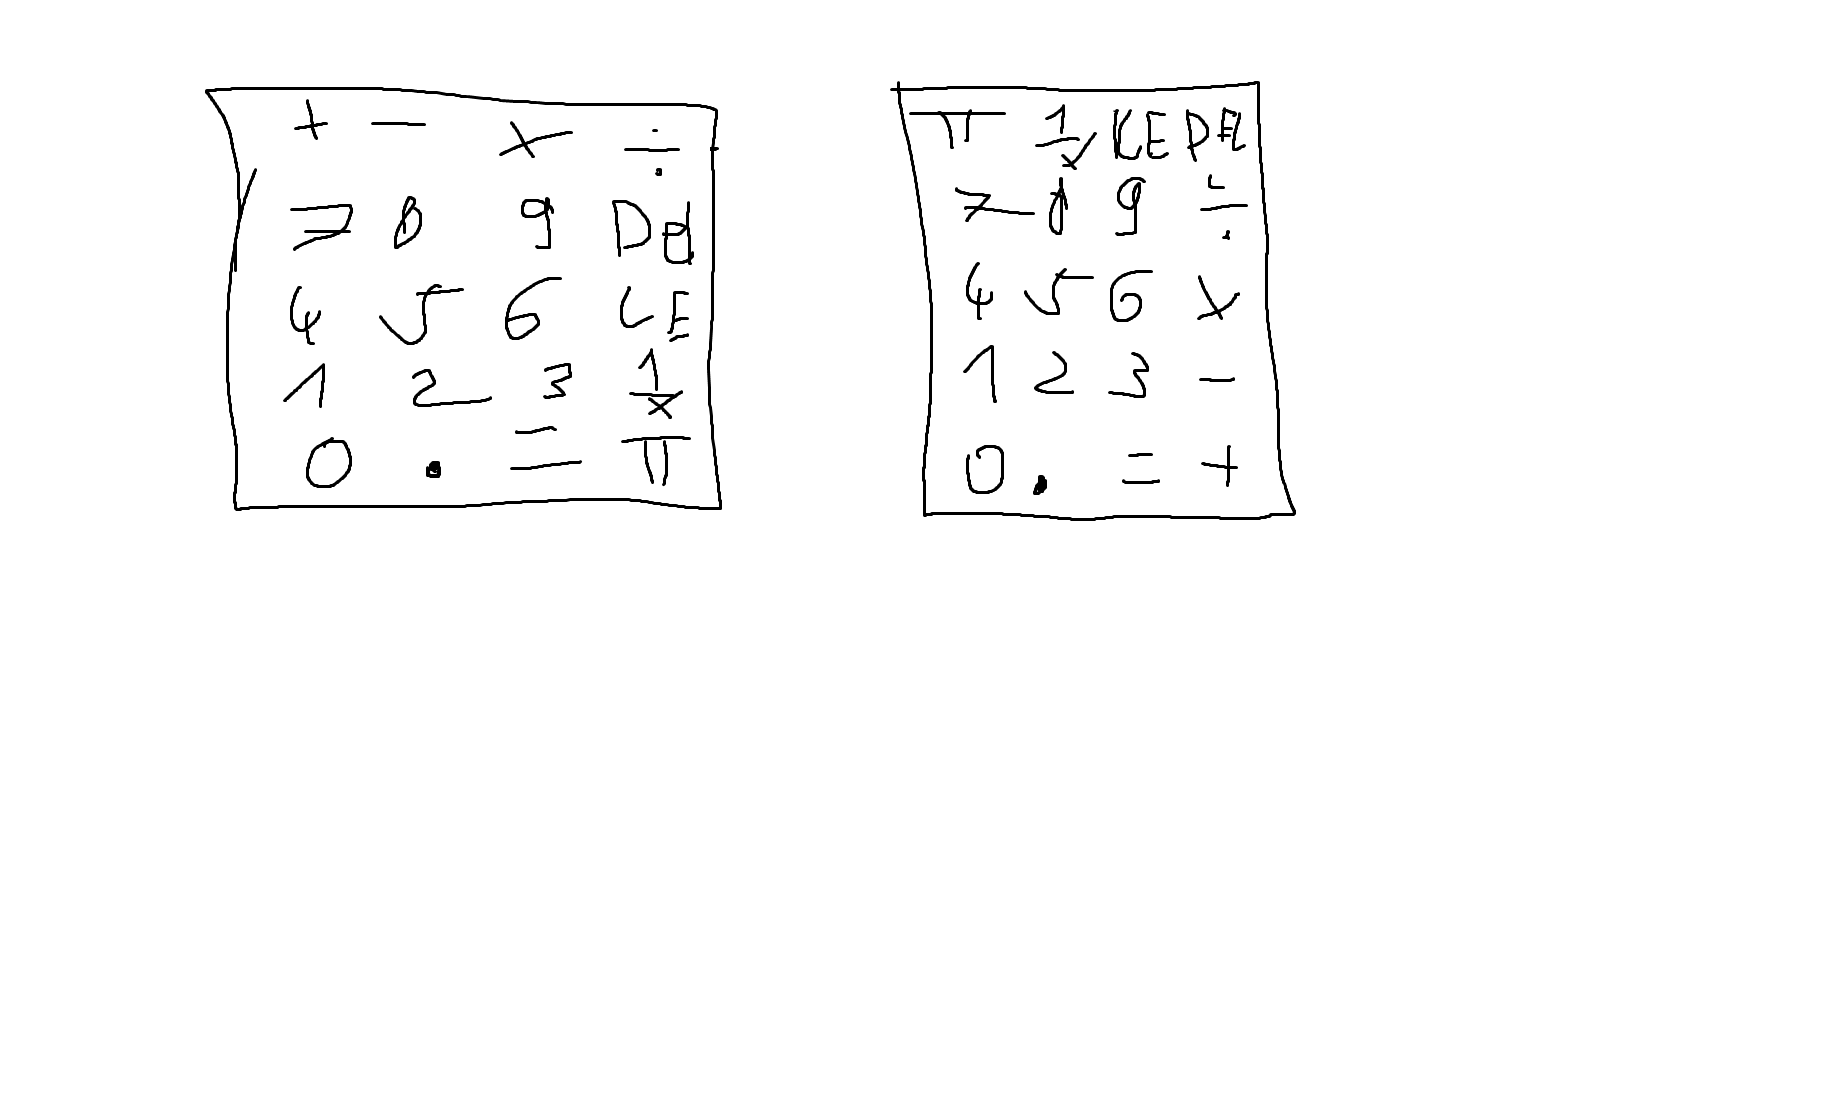 + - × ÷
7 8 9 Del
4 5 6 CE
1 2 3 1/x
0 . = π
π 1/x CE DEL
7 8 9 ÷
4 5 6 ×
1 2 3 -
0 . = +